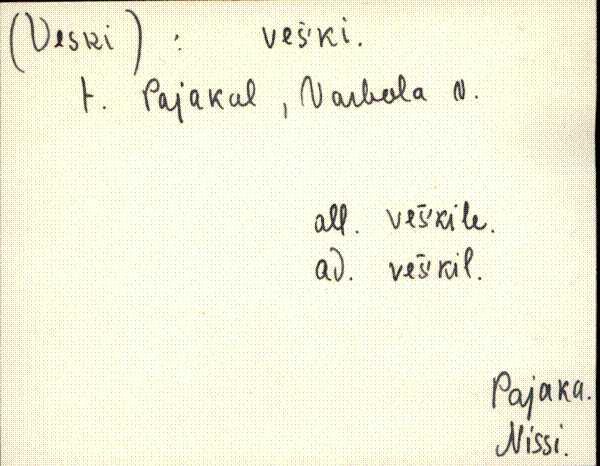 (Veski) : veški.
t. Pajakal, Varbola v.
all. veškile.
ad. veškil.
Pajaka.
Nissi.